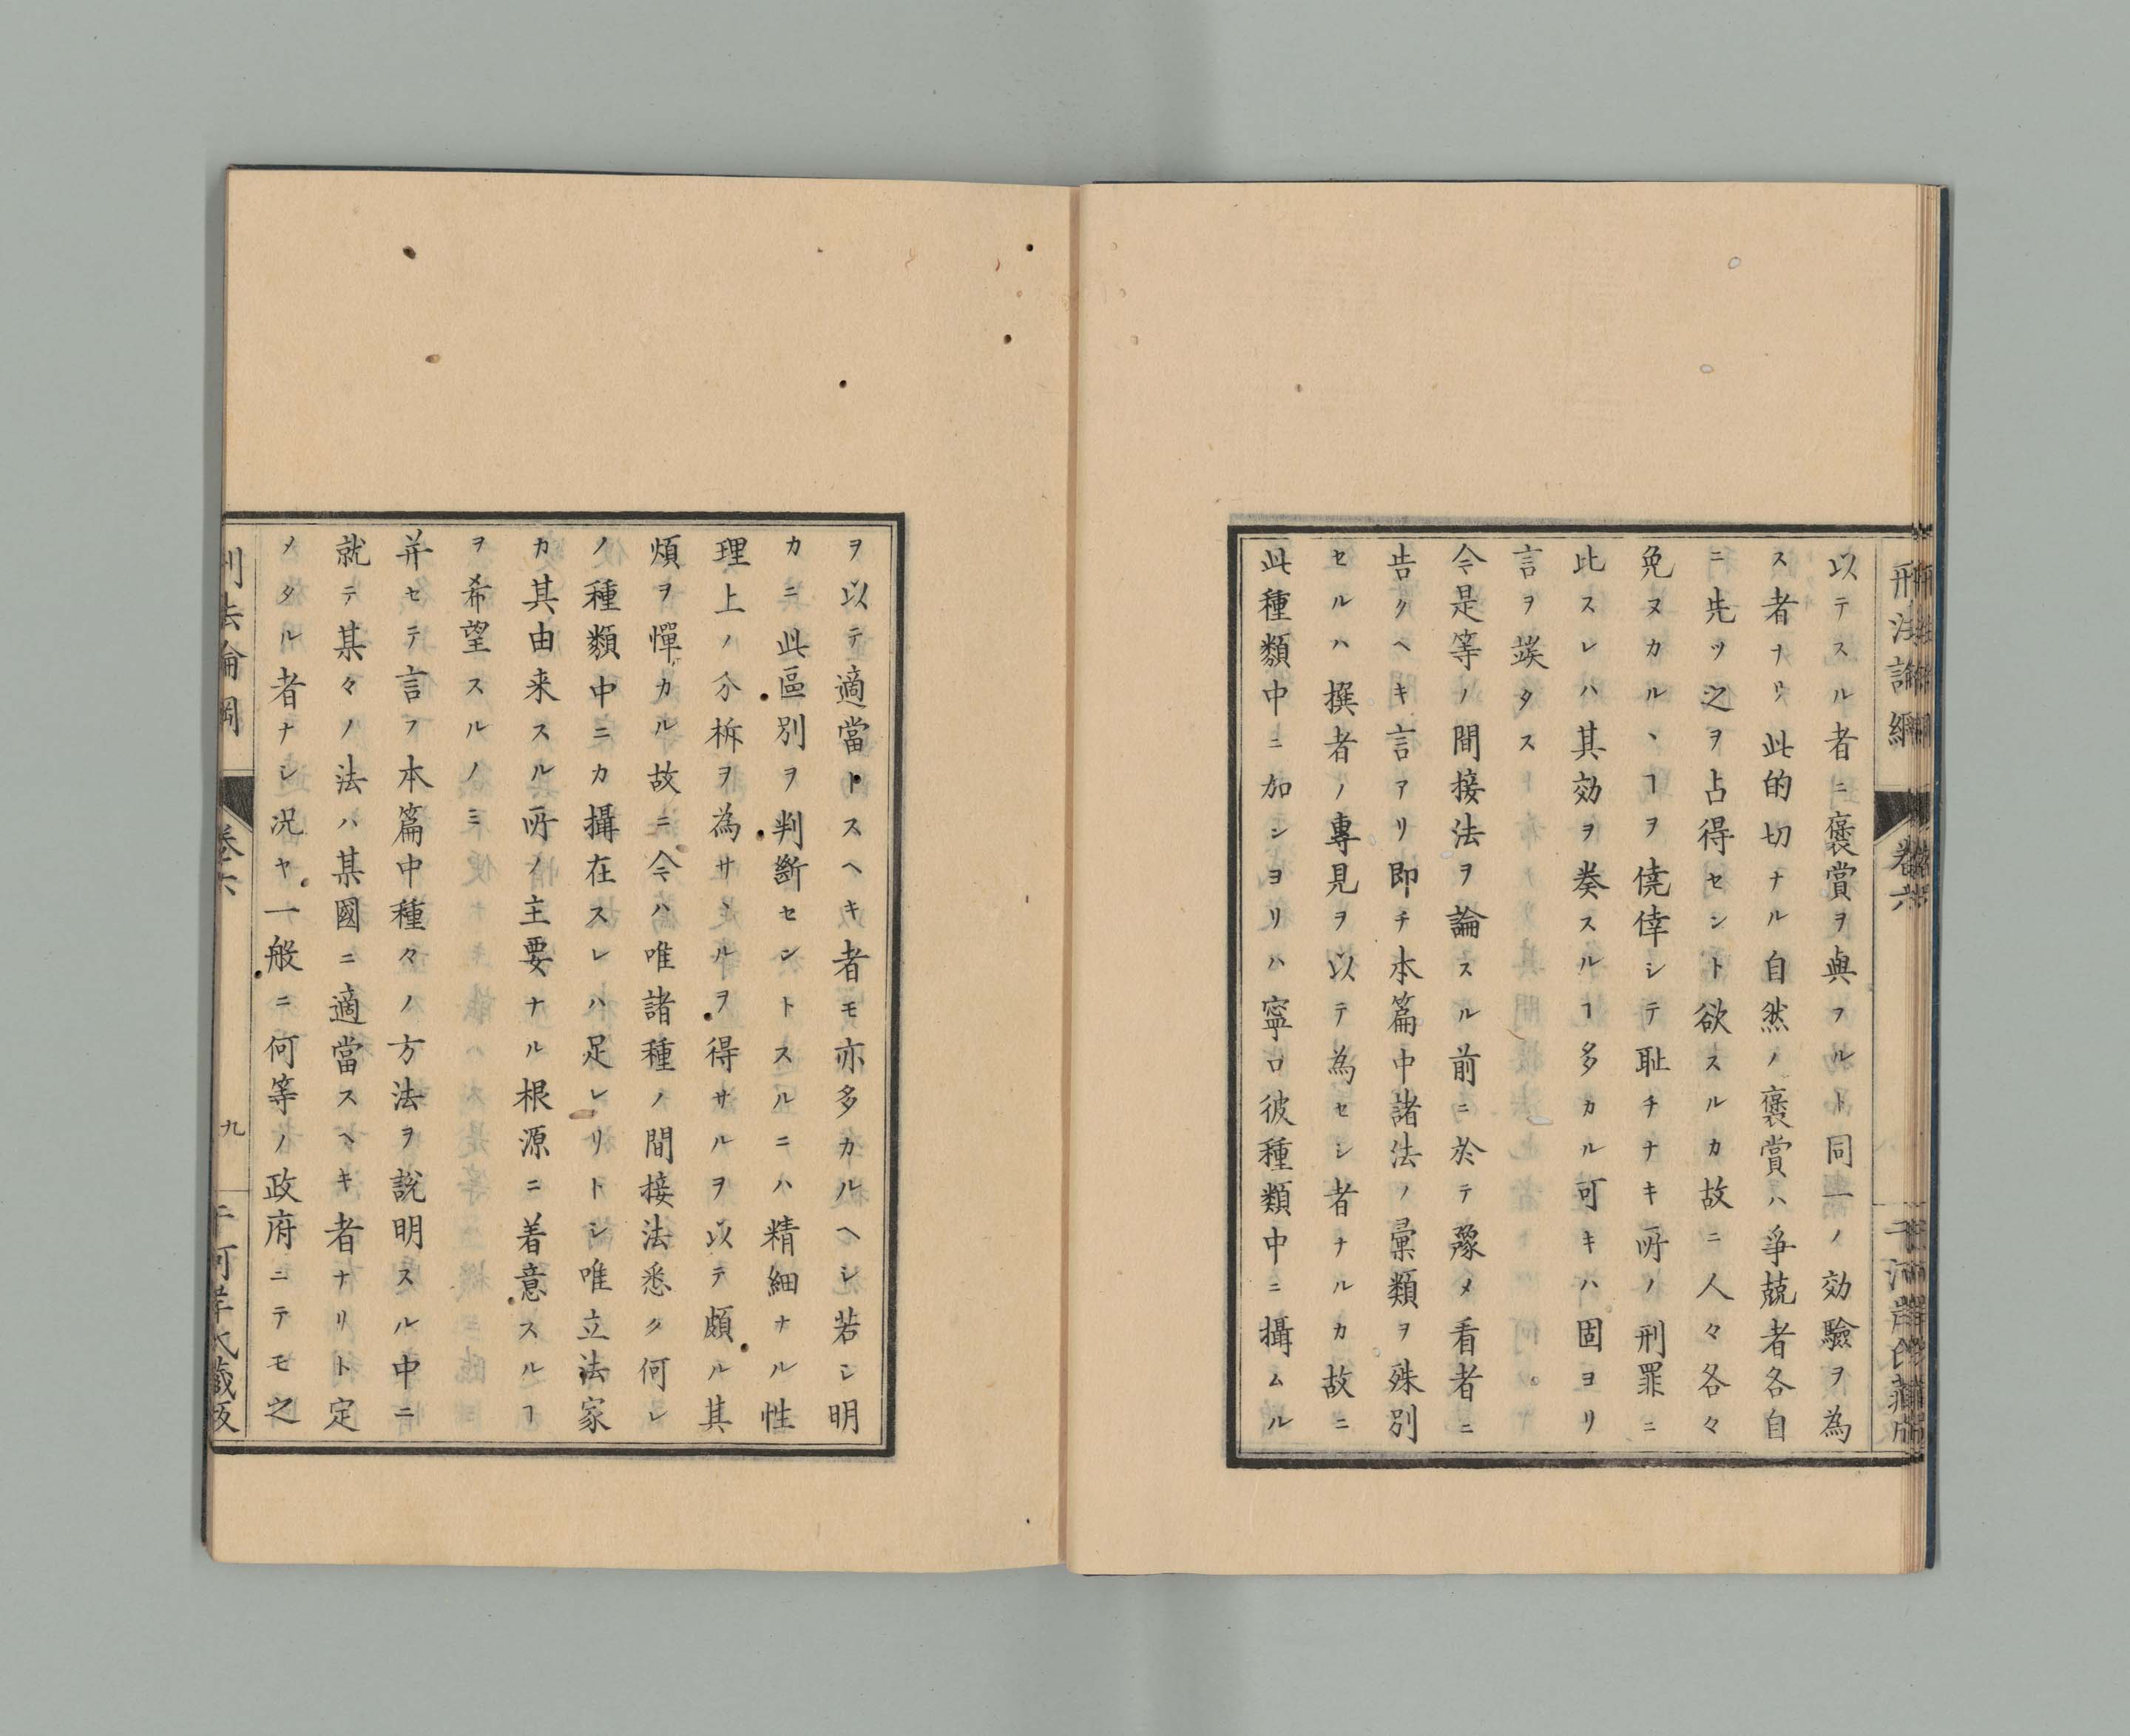 刑法論綱
卷六
以テスル者ニ褒賞ヲ與フルト同一ノ効驗ヲ為
ス者ナリ此的切ナル自然ノ褒賞ハ爭兢者各自
ニ先ツ之ヲ占得セント欲スルカ故ニ人々各々
免ヌカルヽヿヲ僥倖シテ耻チナキ所ノ刑罪ニ
此スレハ其効ヲ奏スルヿ多カル可キハ固ヨリ
言ヲ竢タス
今是等ノ間接法ヲ論スル前ニ於テ豫メ看者ニ
告クヘキ言アリ即チ本篇中諸法ノ彙類ヲ殊別
セルハ撰者ノ專見ヲ以テ為セシ者ナルカ故ニ
此種類中ニ加ンヨリハ寧ロ彼種類中ニ攝ムル
ヲ以テ適當トスヘキ者モ亦多カルヘシ若シ明
カニ此區別ヲ判斷セントスルニハ精細ナル性
理上ノ分柝ヲ為サヽルヲ得サルヲ以テ頗ル其
煩ヲ憚カル故ニ今ハ唯諸種ノ間接法悉ク何レ
ノ種類中ニカ攝在スレハ足レリトシ唯立法家
カ其由来スル所ノ主要ナル根源ニ着意スルヿ
ヲ希望スルノミ
并セテ言フ本篇中種々ノ方法ヲ説明スル中ニ
就テ某々ノ法ハ某國ニ適當スヘキ者ナリト定
メタル者ナシ况ヤ一般ニ何等ノ政府ニテモ之
刑法論綱
卷六
九